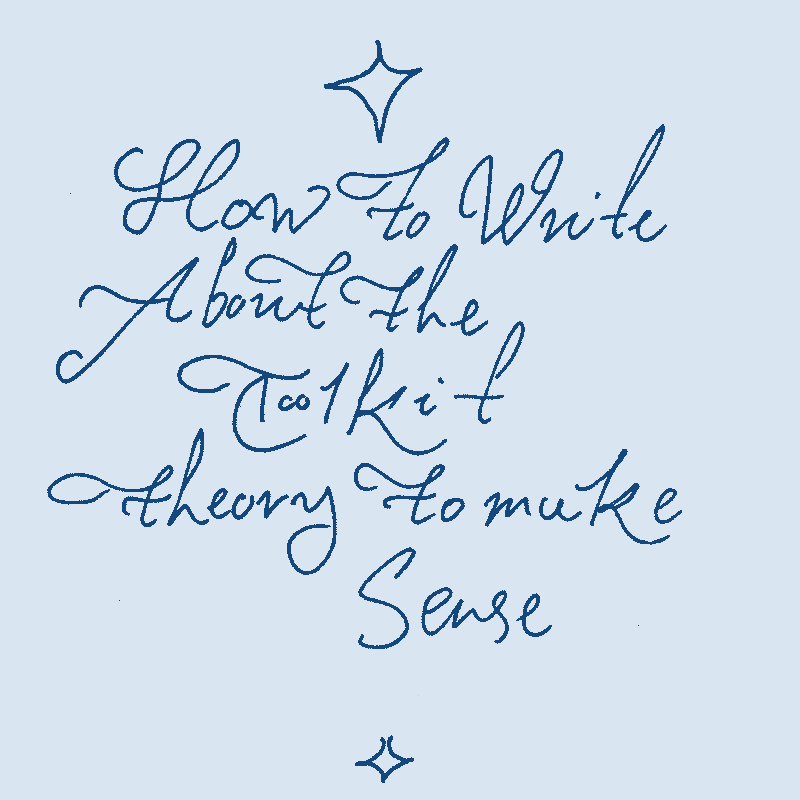 How To Write
About The
Toolkit
Theory To make
Sense